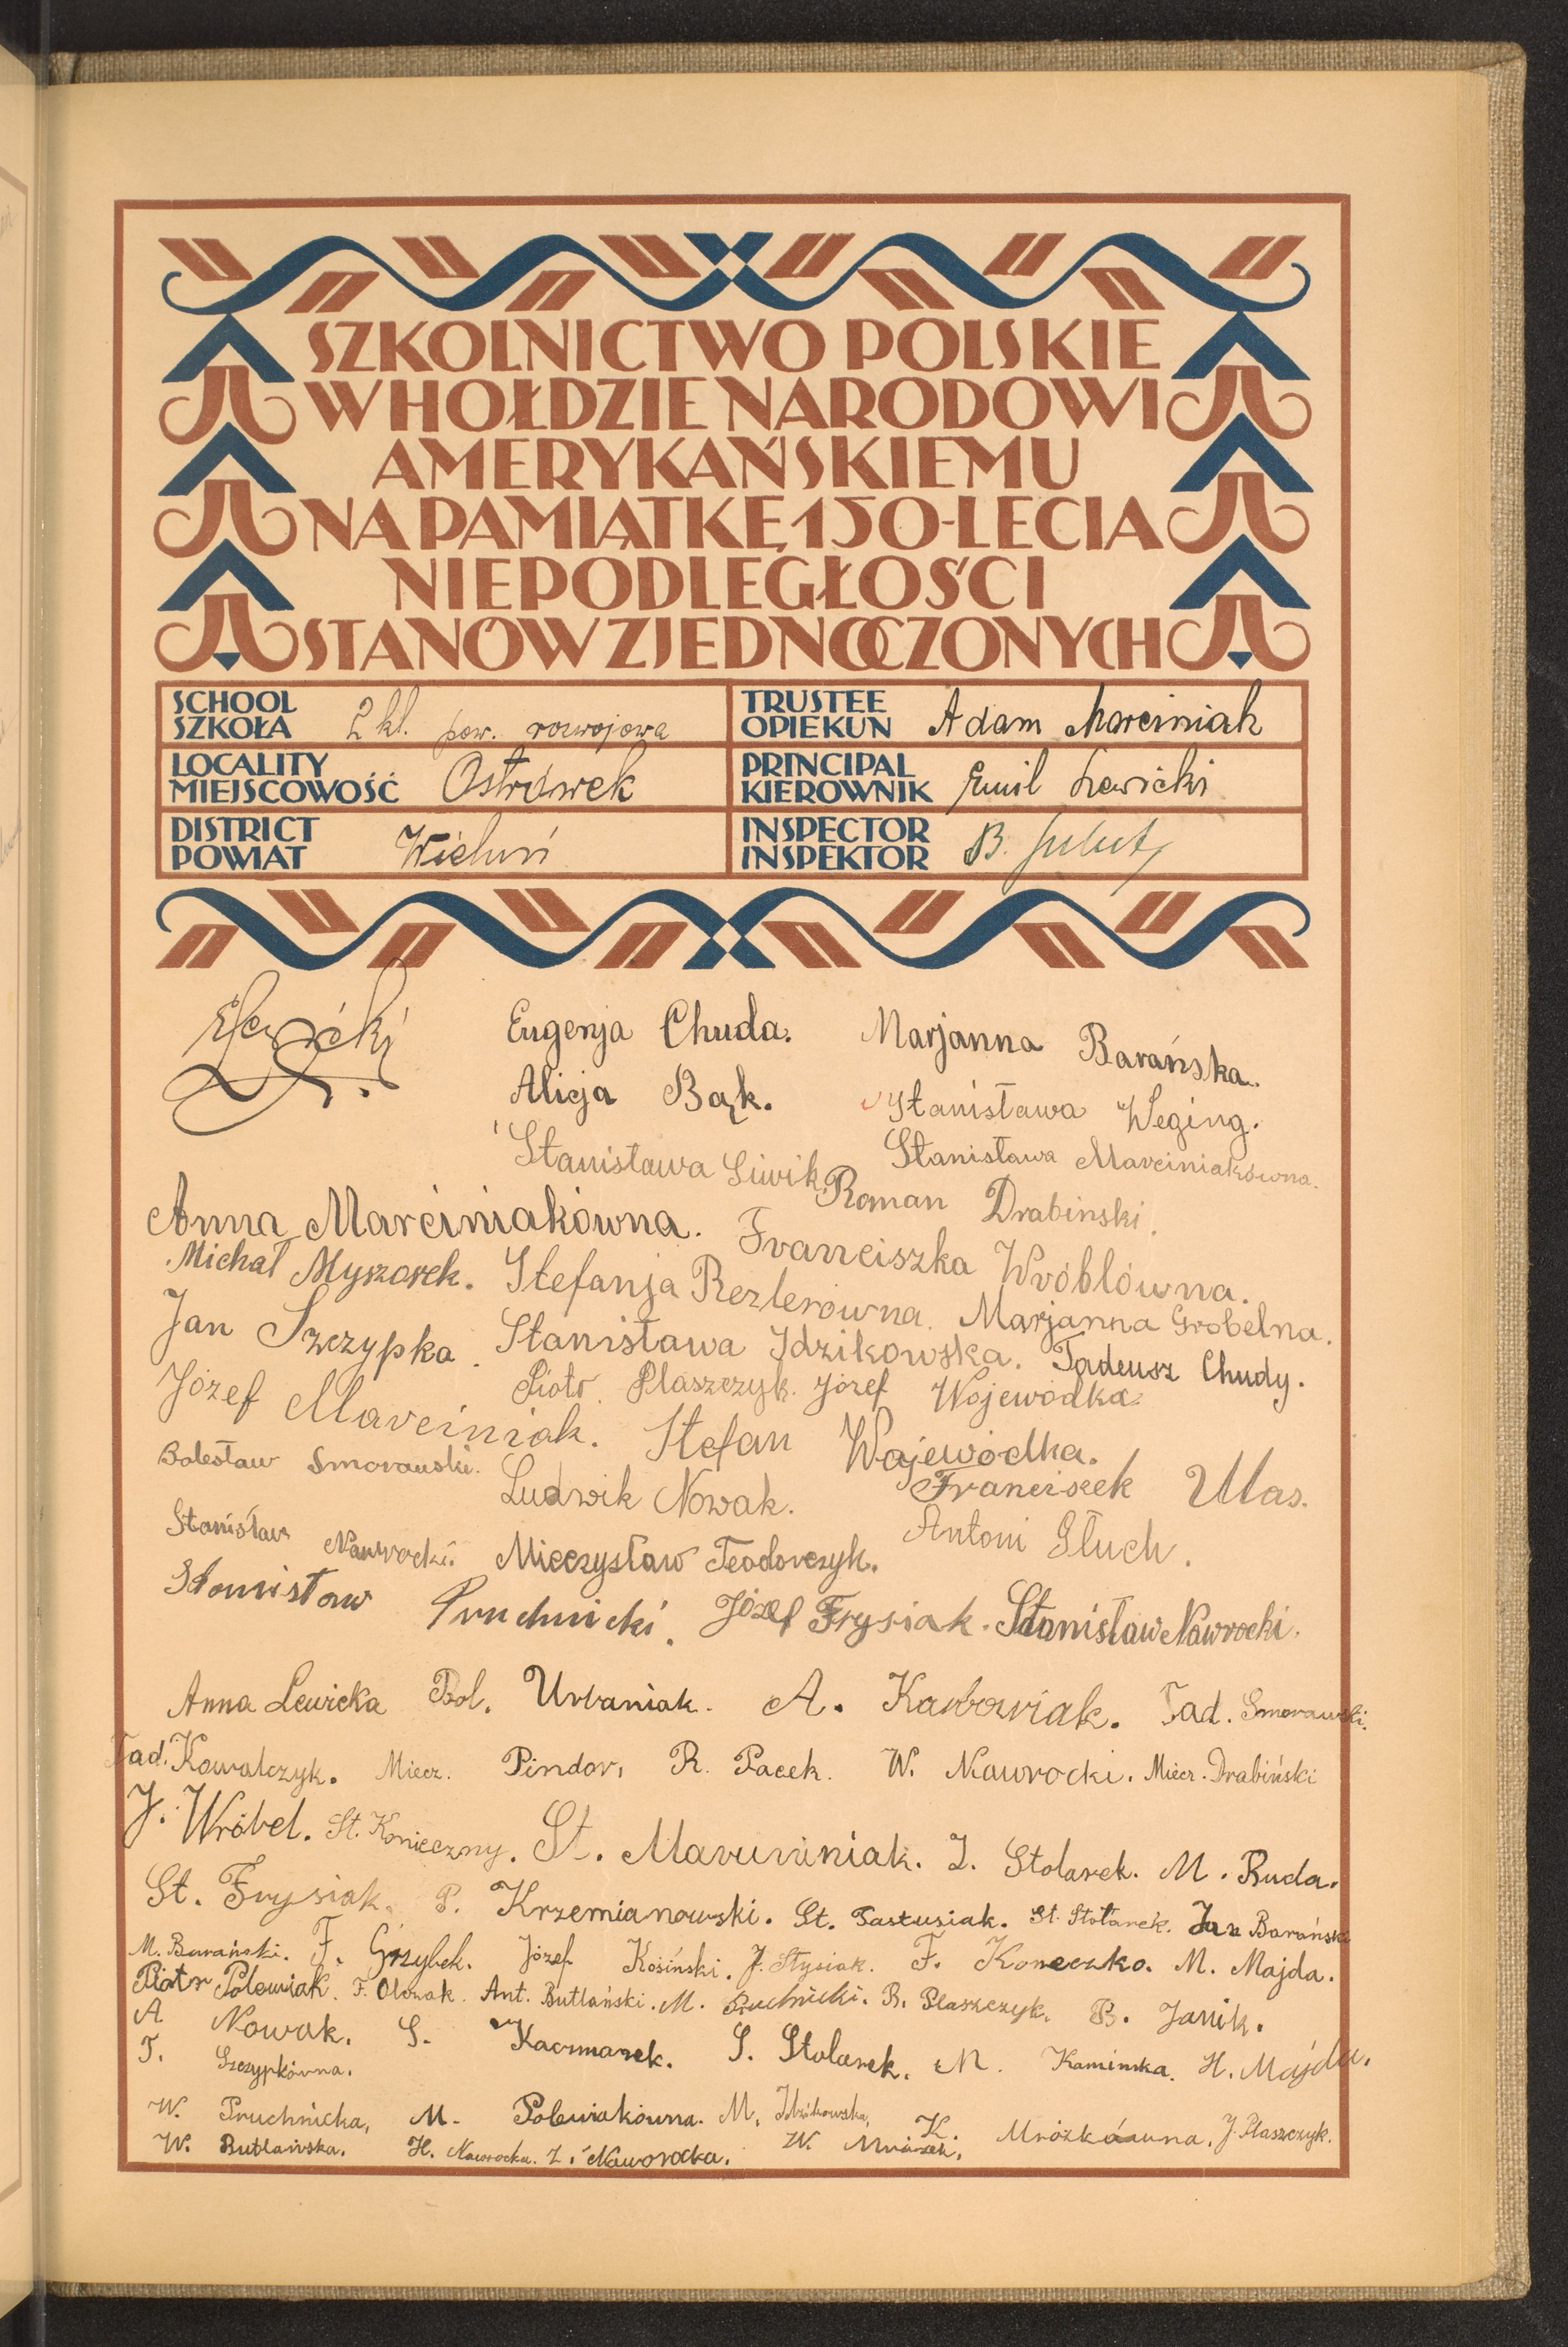 SZKOLNICTWO POLSKIE
W HOŁDZIE NARODOWI
AMERYKAŃSKIEMU
NA PAMIĄTKĘ 150-LECIA
NIEPODLEGŁOŚCI
STANÓW ZJEDNOCZONYCH
SCHOOL
SZKOŁA 2 kl. pow. rozwojowa
TRUSTEE
OPIEKUN Adam Marciniak
LOCALITY
MIEJSCOWOŚĆ Ostrówek
PRINCIPAL
KIEROWNIK Emil Lewicki
DISTRICT
POWIAT Wieluń
INSPECTOR
INSPEKTOR B.
ELewicki Eugenja Chuda. Marjanna Barańska.
Alicja Bąk. Stanisława Weging.
Stanisława Siwik Stanisława Marciniakówna.
Roman Drabinski.
Anna Marciniakówna. Franciszka Wróblówna.
Michał Myszorek. Stefanja Rezlerówna. Marjanna Grobelna.
Jan Szczypka. Stanisława Idzikowska. Tadeusz Chudy.
Piotr Płaszczyk. Józef Wojewódka.
Józef Marciniak. Stefan Wojewódka.
Bolesław Smorawski. Ludwik Nowak. Franciszek Ulas.
Stanisław Nawrocki. Mieczysław Teodorczyk. Antoni Głuch.
Stanisław Pruchnicki. Józef Frysiak. Stanisław Nawrocki.
Anna Lewicka Bol. Urbaniak. A. Karbowiak. Tad. Smorawski.
Tad. Kowalczyk. Miecz. Pindor, R. Pacek. W. Nawrocki. Miecz. Drabiński
J. Wróbel. St. Konieczny. St. Marciniak. J. Stolarek. M. Ruda.
St. Frysiak. P. Krzemianowski. St. Tastusiak. St. Stolarek. Jan Barański
M. Barański. F. Grzybek. Józef Kosiński. J. Stysiak. F. Koneczko. M. Majda.
Piotr Polewiak. F. Olczak. Ant. Butlański. M. Pruchnicki. B. Płaszczyk. B. Janik.
A Nowak. S. Kaczmarek. S. Stolarek. M. Kamińska. H. Majda.
T. Szczypkówna.
W. Pruchnicka, M. Polewiakówna. M. Idzikowska, K. Mrózkówna. J. Płaszczyk.
W. Butlańska. H. Nawrocka. Z. Nawrocka. W. Mrózek.